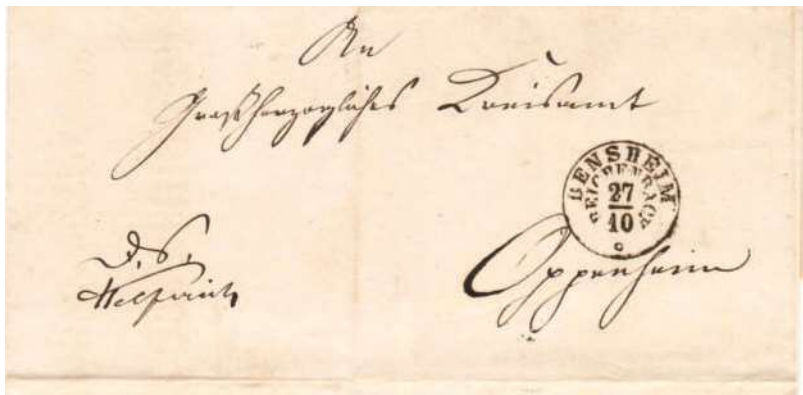 An
Großherzogliches Kreisamt
BENSHEIM
REICHENBACH
27
10
D. S.
Oppenheim